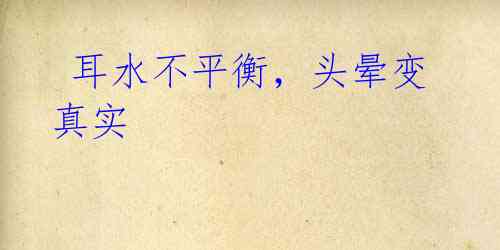 耳水不平衡，头晕变
真实